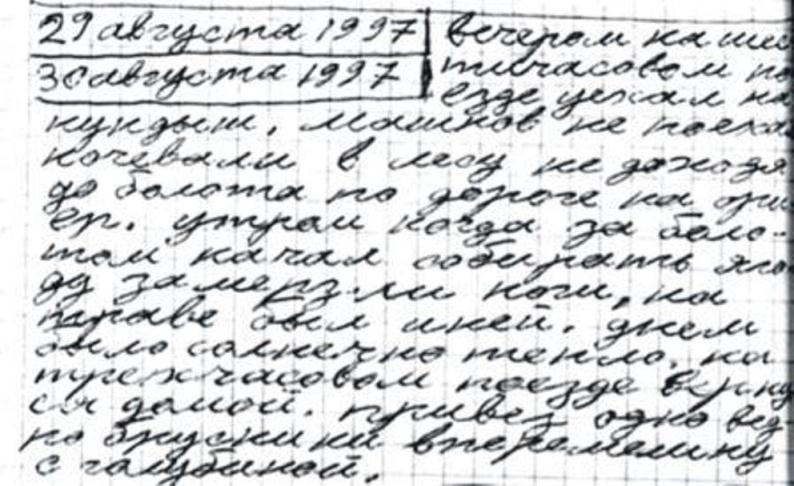 29 августа 1997
30 августа 1997
вечером на шес
тичасовом по
езде уехал на
кундыш, машнов не поехал
ночевали в лесу не доходя
до болота по дороге на
ер. утром когда за боло-
том начал собирать яго
ду замерзли ноги, на
траве был иней. днем
было солнечно тепло. на
трехчасовом поезде верну
ся домой. привез одно вед-
ро брусники вперемешку
с голубикой.